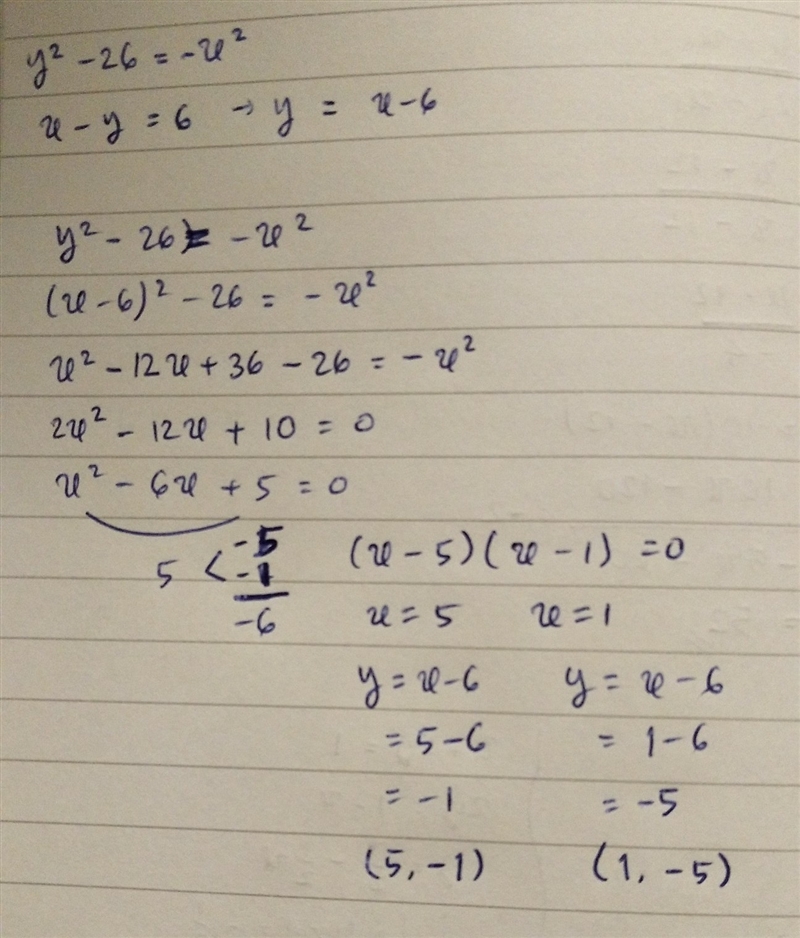 y² - 26 = -x²
x - y = 6 → y = x - 6
y² - 26 = -x²
(x - 6)² - 26 = -x²
x² - 12x + 36 - 26 = -x²
2x² - 12x + 10 = 0
x² - 6x + 5 = 0
5 < -5
-1
-6
(x - 5)(x - 1) = 0
x = 5 x = 1
y = x - 6 y = x - 6
= 5 - 6 = 1 - 6
= -1 = -5
(5, -1) (1, -5)